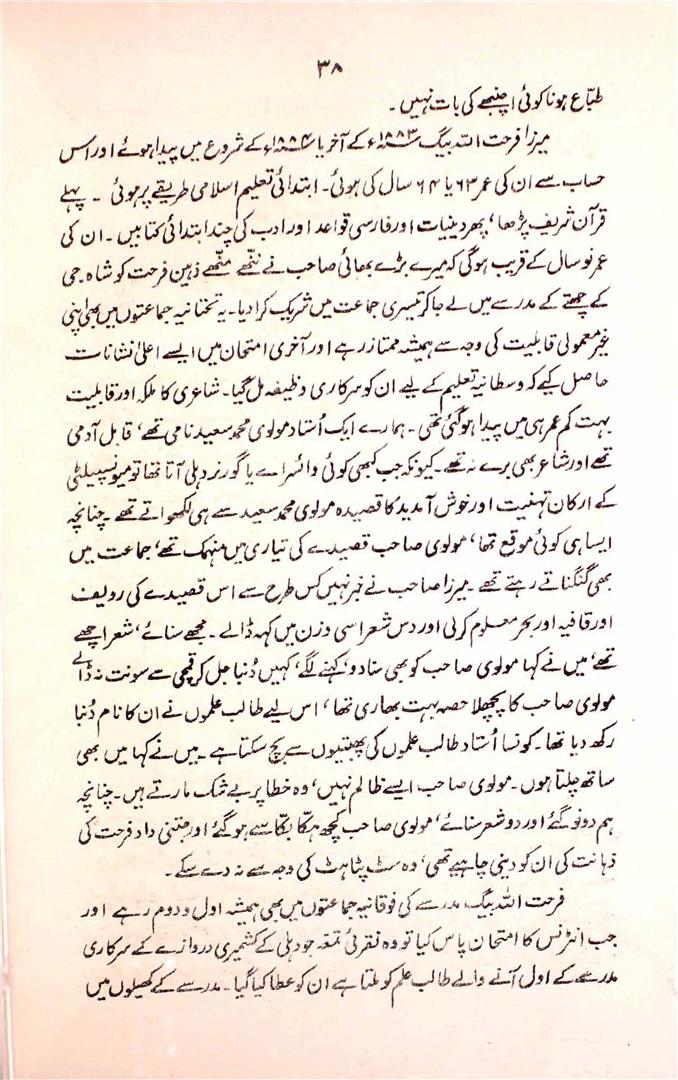 ۳۸
طبّاع ہونا کوئی اچنبھے کی بات نہیں ۔
میرزا فرحت اللہ بیگ ۱۸۸۳ء کے آخر یا ۱۸۸۴ء کے شروع میں پیدا ہوئے اور اس
حساب سے ان کی عمر ۶۳ یا ۶۴ سال کی ہوئی ۔ ابتدائی تعلیم اسلامی طریقے پر ہوئی ۔ پہلے
قرآن شریف پڑھا ، پھر دینیات اور فارسی قواعد اور ادب کی چند ابتدائی کتابیں ۔ ان کی
عمر نو سال کے قریب ہوگی کہ میرے بڑے بھائی صاحب نے ننھے منّھے ذہین فرحت کو شاہ جی
کے چھتے کے مدرسے میں لے جا کر تیسری جماعت میں شریک کرا دیا ۔ یہ تختانیہ جماعتوں میں بھی اپنی
غیر معمولی قابلیت کی وجہ سے ہمیشہ ممتاز رہے اور آخری امتحان میں ایسے اعلیٰ نشانات
حاصل کیے کہ وسطانیہ تعلیم کے لیے ان کو سرکاری وظیفہ مل گیا ۔ شاعری کا ملکہ اور قابلیت
بہت کم عمر ہی میں پیدا ہو گئی تھی ۔ ہمارے ایک اُستاد مولوی محمد سعید نامی تھے ، قابل آدمی
تھے اور شاعر بھی برے نہ تھے ۔ کیونکہ جب کبھی کوئی وائسراے یا گورنر دہلی آتا تھا تو میونسپیلٹی
کے ارکان تہنیت اور خوش آمدید کا قصیدہ مولوی محمد سعید سے ہی لکھواتے تھے ۔ چنانچہ
ایسا ہی کوئی موقع تھا ، مولوی صاحب قصیدے کی تیاری میں منہمک تھے ، جماعت میں
بھی گنگناتے رہتے تھے ۔ میرزا صاحب نے خبر نہیں کس طرح سے اس قصیدے کی ردیف
اور قافیہ اور بحر معلوم کرلی اور دس شعر اسی وزن میں کہہ ڈالے ۔ مجھے سنائے ، شعر اچھے
تھے ، میں نے کہا مولوی صاحب کو بھی سنا دو ، کہنے لگے ، کہیں دُنیا جل کر قمچی سے سونت نہ ڈالے
مولوی صاحب کا پچھلا حصہ بہت بھاری تھا ، اس لیے طالب علموں نے ان کا نام دُنیا
رکھ دیا تھا ۔ کونسا اُستاد طالب علموں کی پھبتیوں سے بچ سکتا ہے ۔ میں نے کہا میں بھی
ساتھ چلتا ہوں ۔ مولوی صاحب ایسے ظالم نہیں ، وہ خطا پر بے شک مارتے ہیں ۔ چنانچہ
ہم دونو گئے اور دو شعر سنائے ، مولوی صاحب کچھ ہکّا بکّا سے ہو گئے اور جتنی داد فرحت کی
ذہانت کی ان کو دینی چاہیے تھی ، وہ سٹ پٹاہٹ کی وجہ سے نہ دے سکے ۔
فرحت اللہ بیگ مدرسے کی فوقانیہ جماعتوں میں بھی ہمیشہ اول و دوم رہے اور
جب انٹرنس کا امتحان پاس کیا تو وہ نقرئی تمغہ جو دہلی کے کشمیری دروازے کے سرکاری
مدرسے کے اول آنے والے طالب علم کو ملتا ہے ان کو عطا کیا گیا ۔ مدرسے کے کھیلوں میں